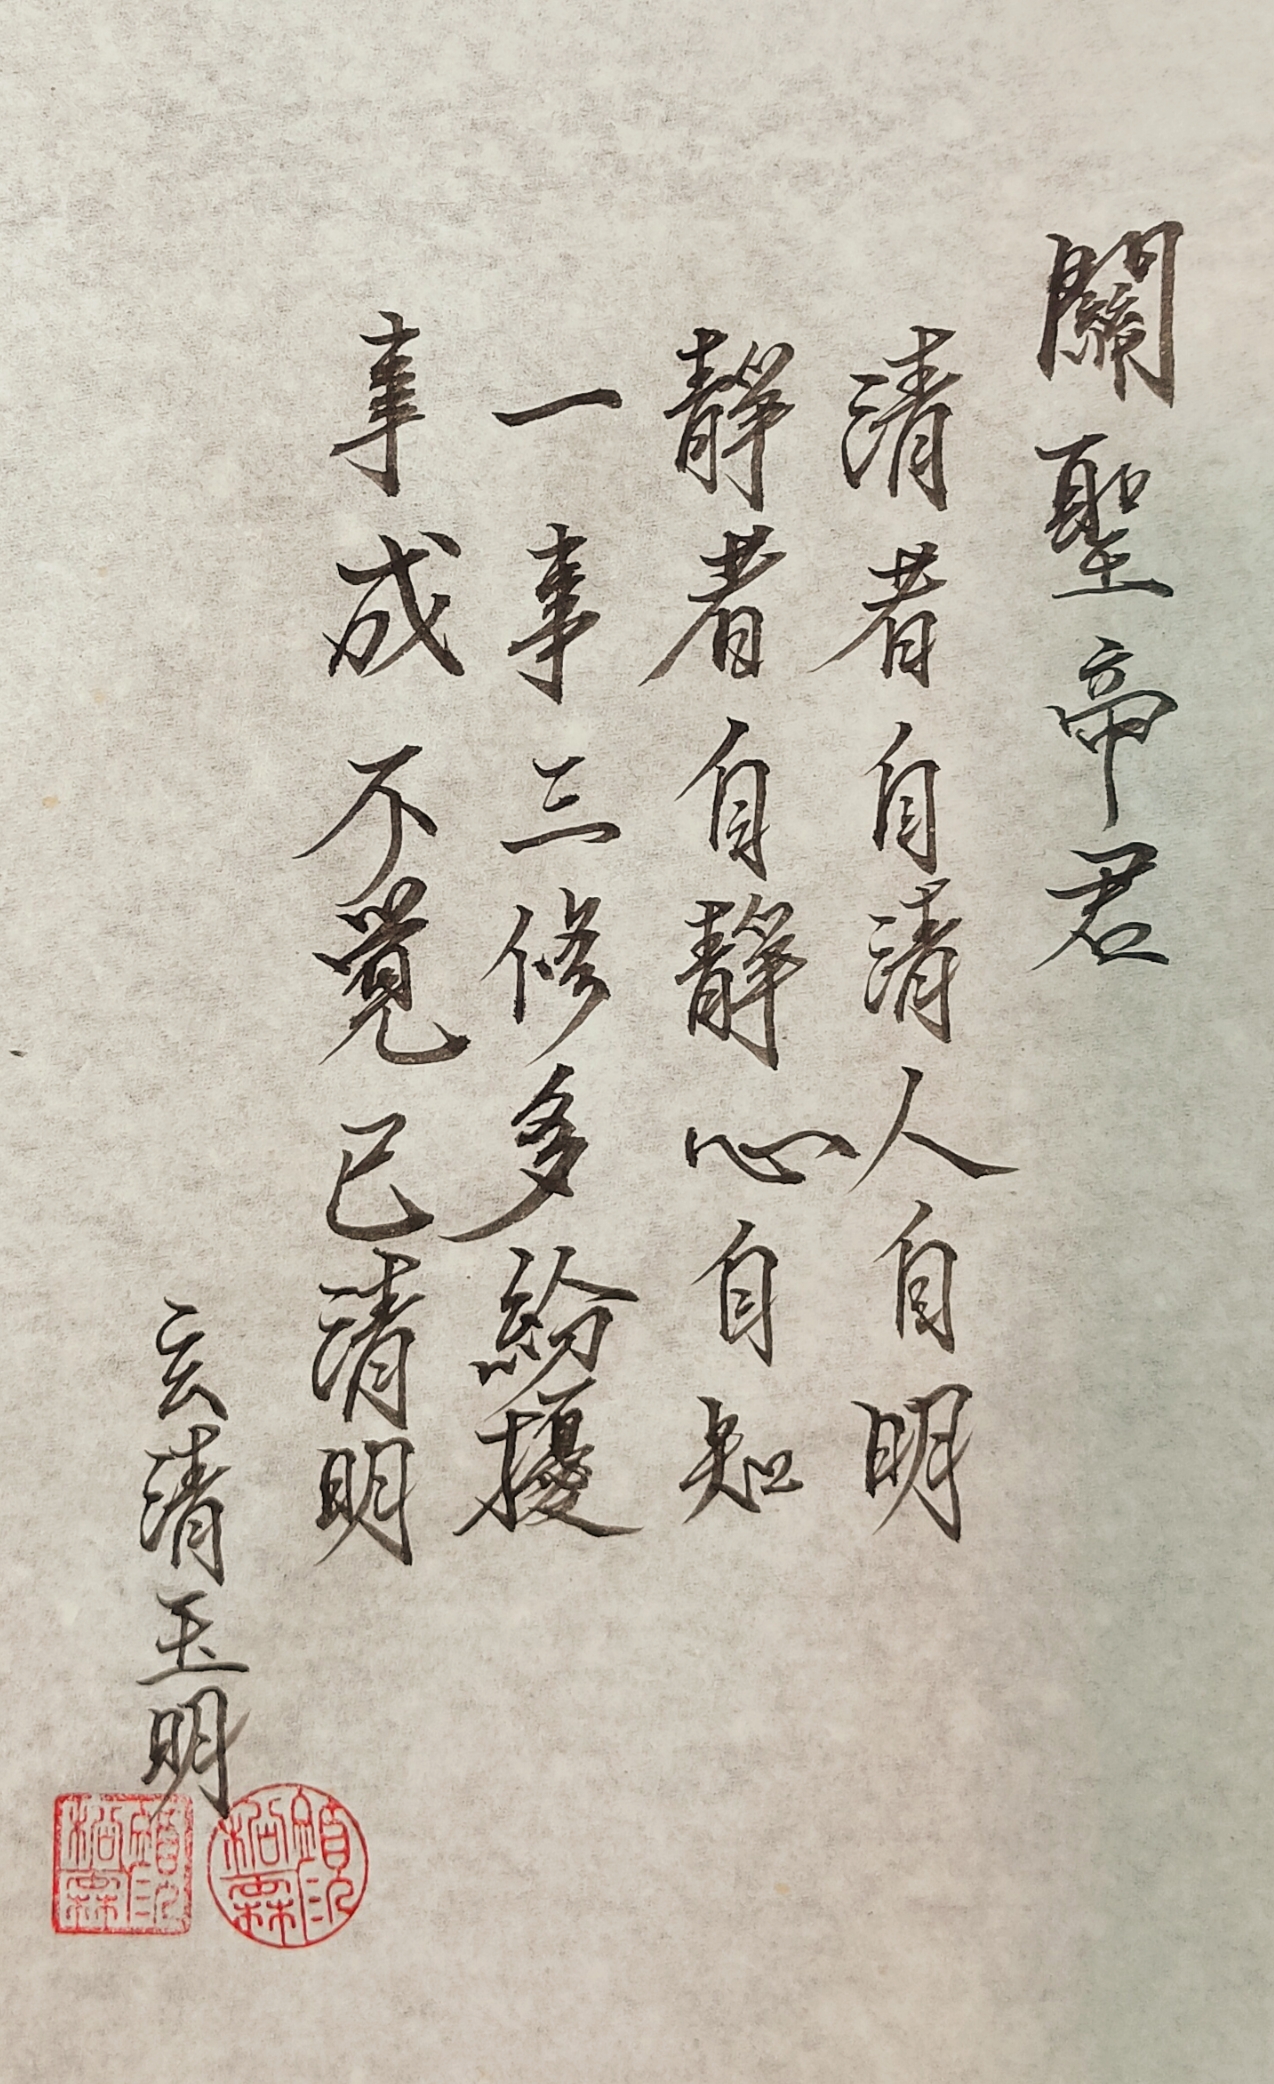 關聖帝君
清者自清人自明
靜者自靜心自知
一事三修多紛擾
事成不覺已清明
玄清玉明